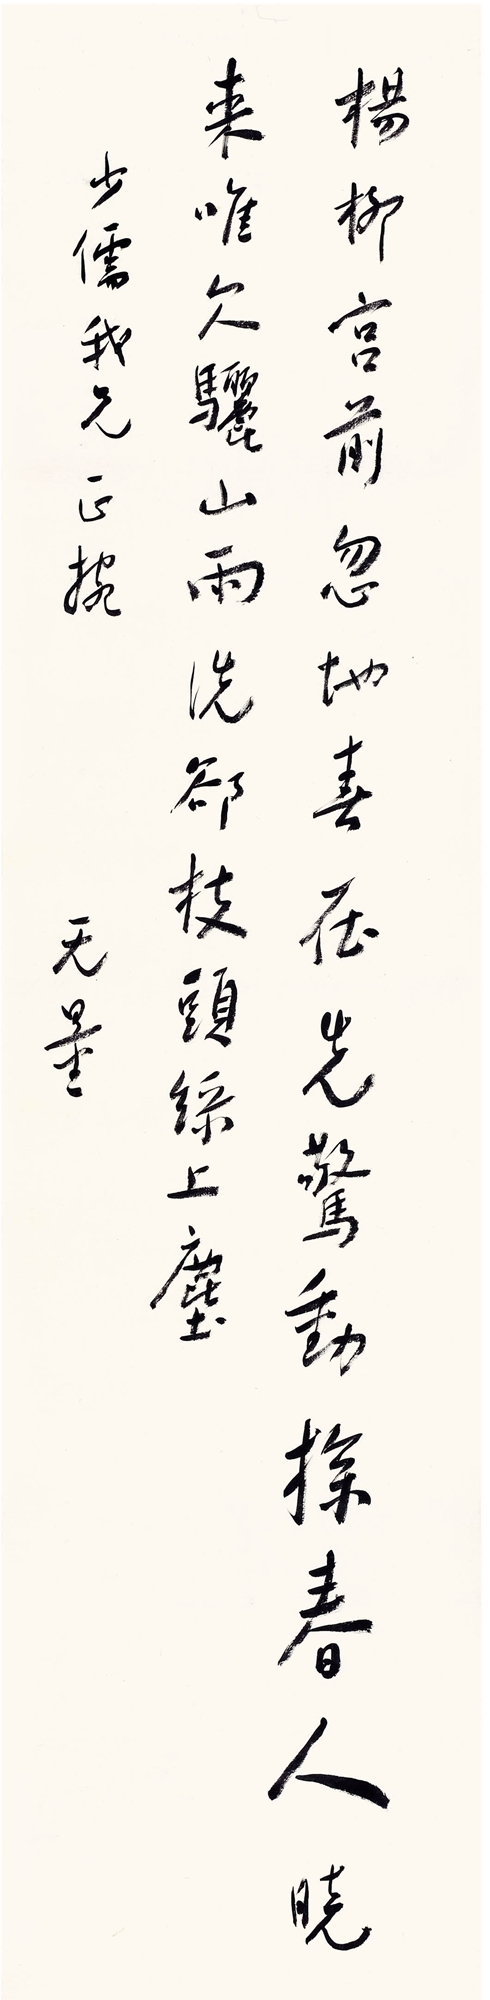 楊柳宮前忽地春在先驚動探春人曉
来唯欠驪山雨洗郤枝頭綠上塵
少儒我兄正捥
无量